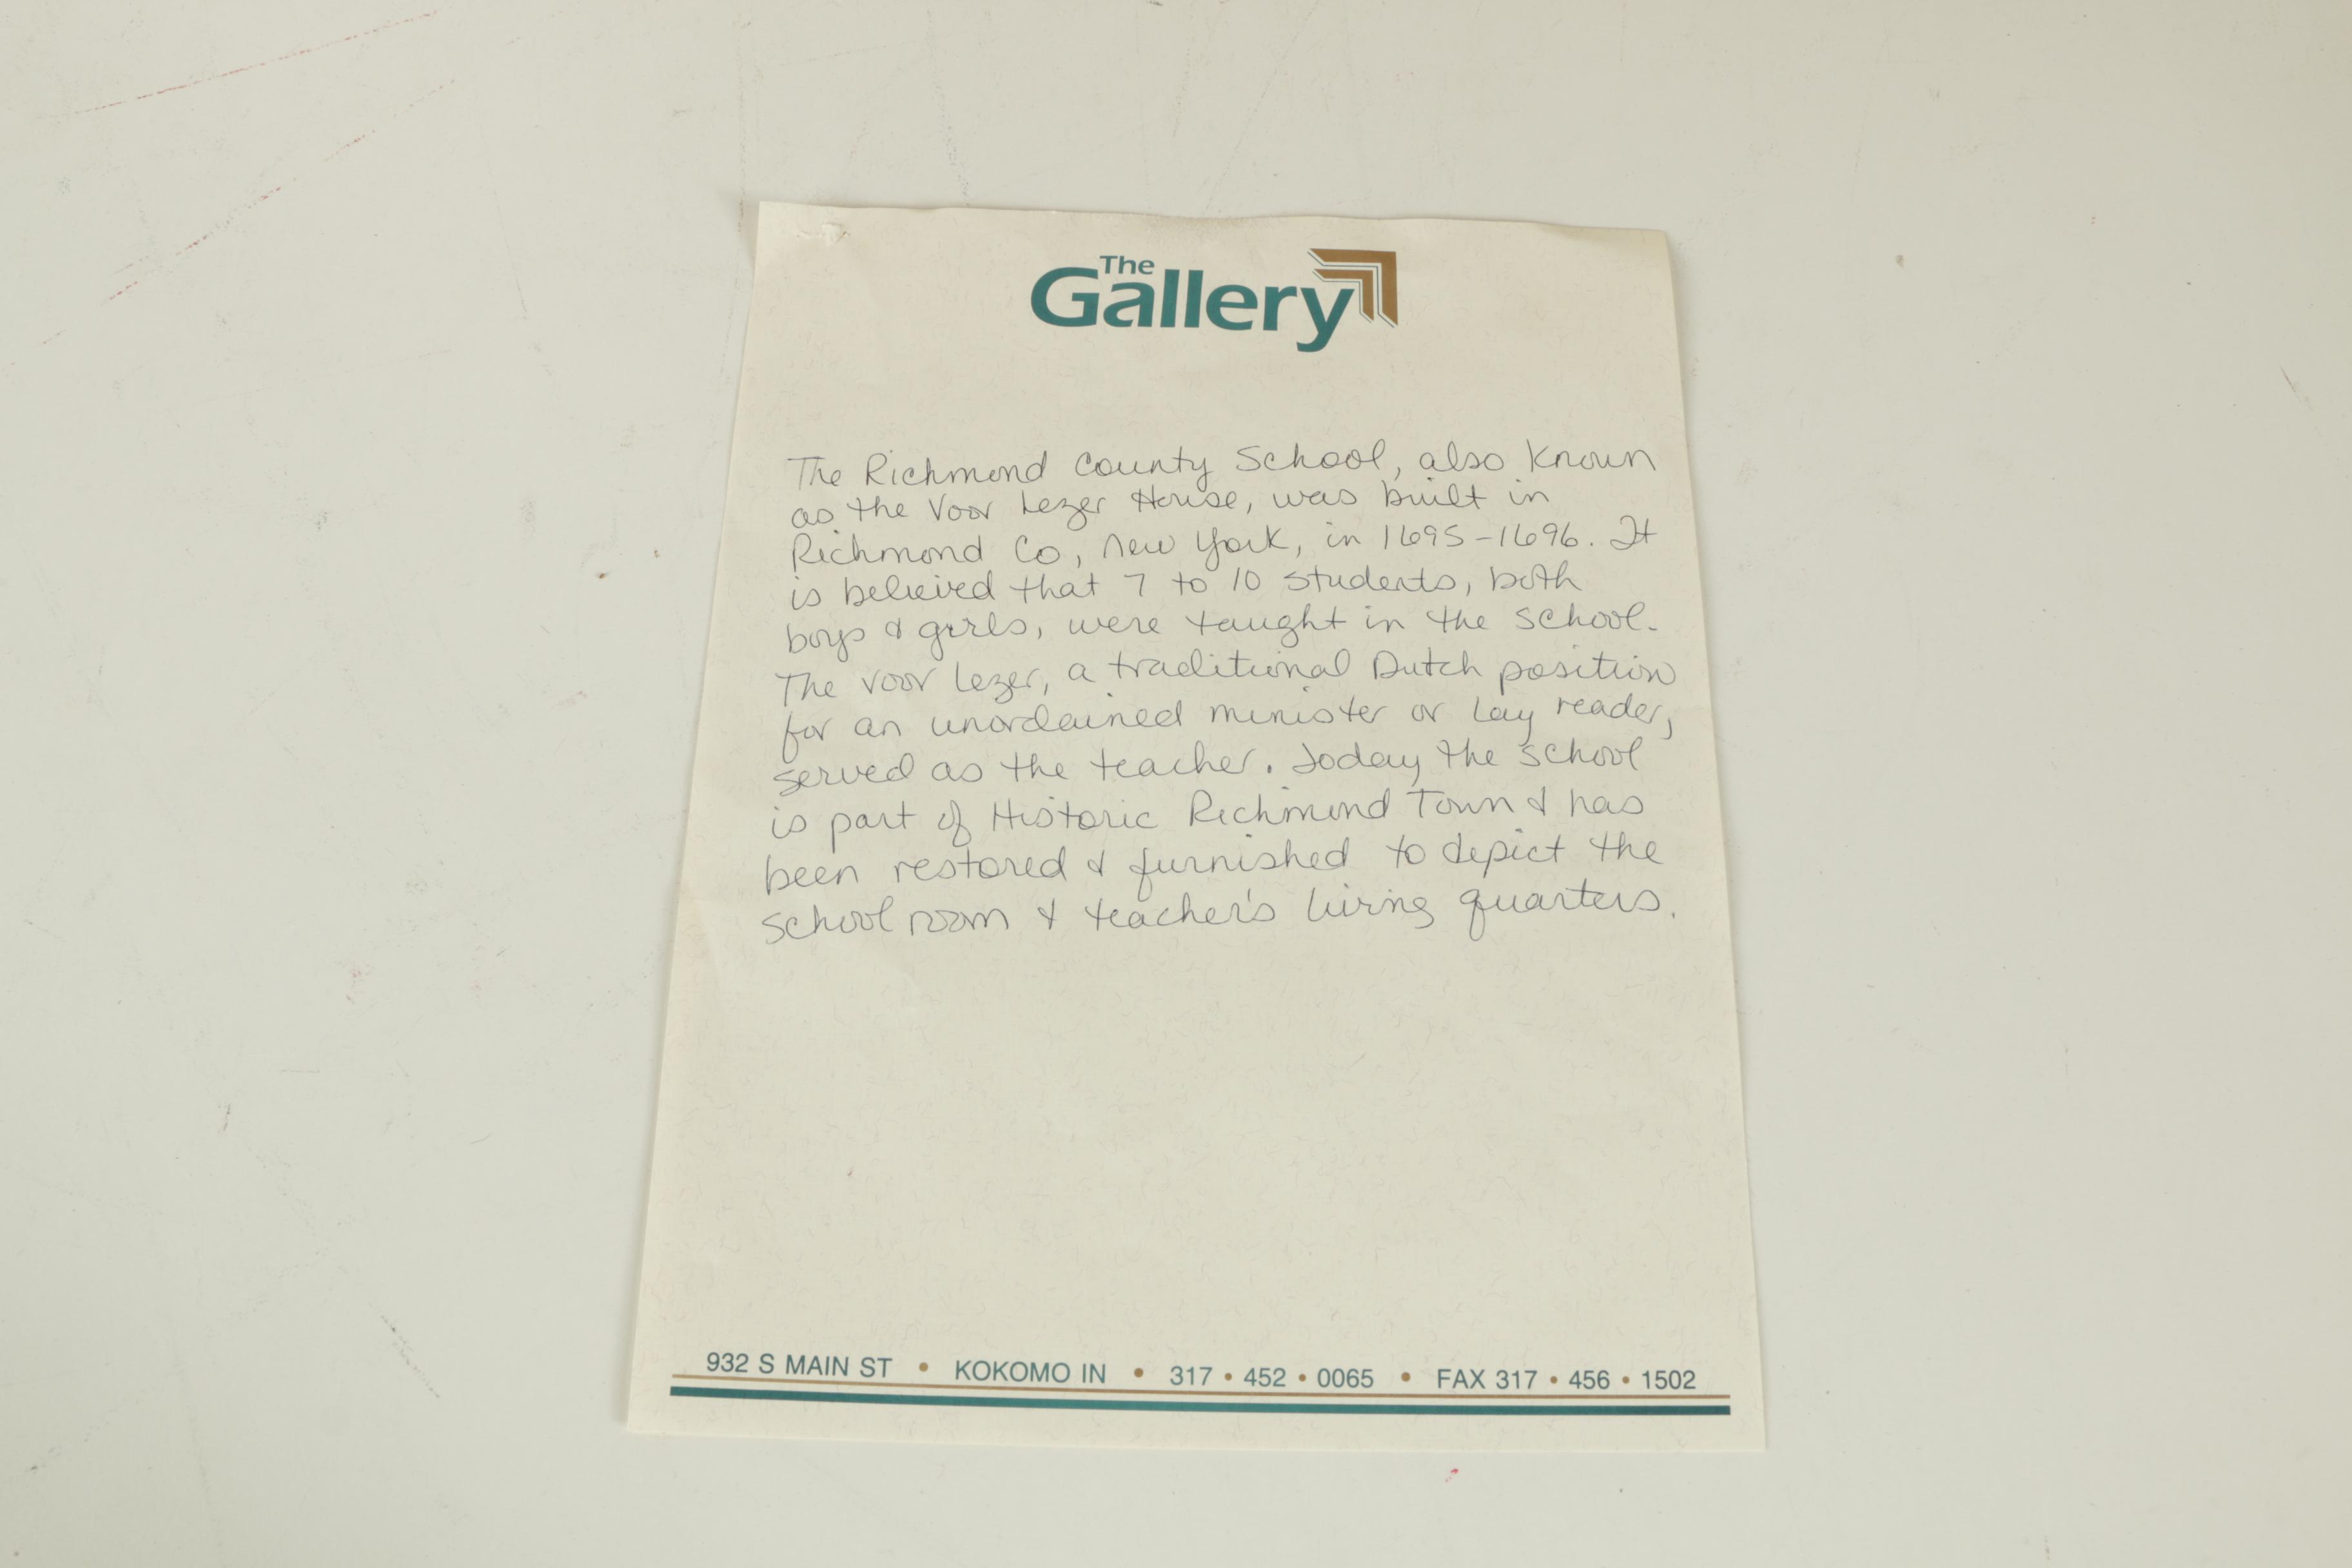 The Gallery
The Richmond County School, also known
as the Voor Lezer House, was built in
Richmond Co, New York, in 1695-1696. It
is believed that 7 to 10 students, both
boys & girls, were taught in the school.
The Voor Lezer, a traditional Dutch position
for an unordained minister or lay reader,
served as the teacher. Today the school
is part of Historic Richmond Town & has
been restored & furnished to depict the
school room & teacher's living quarters.
932 S MAIN ST • KOKOMO IN • 317 • 452 • 0065 • FAX 317 • 456 • 1502